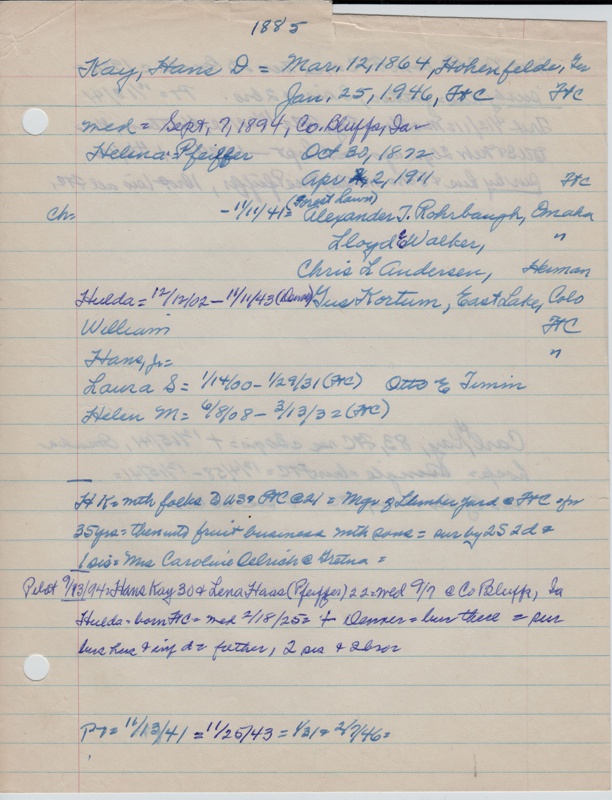 1885
Kay, Hans D = Mar. 12, 1864, Hohenfelde, Ger
Jan. 25, 1946, FtC FtC
med = Sept. 7, 1894, Co. Bluffs, Ia
Helena Pfeiffer Oct 30, 1872
Apr 2, 1911 FtC
ch= - 11/11/41 = (Forest Lawn) Alexander T. Rohrbaugh, Omaha
Lloyd E Walker, "
Chris L Andersen, Herman
Hulda = 12/12/02 - 11/11/43 (Denver) Gus Kortum, East Lake, Colo
William FtC
Hans, Jr = "
Laura S = 1/14/00 - 1/29/31 (FtC) Otto E Timm
Helen M = 6/8/08 - 3/13/32 (FtC)
HK = with folks to USA FtC @ 21 = Mgr of Lumber yard @ FtC for
35 yrs = then into fruit business with sons = sur by 2S 2d &
1 sis = Mrs Caroline Oelrich @ Gretna =
Pilot 9/13/94 = Hans Kay 30 & Lena Haas (Pfeiffer) 22 = med 9/7 @ Co Bluffs, Ia
Hulda = born FtC = med 2/18/25 = + Denver = bur there = sur
hus & inf d = father, 2 sis & 2 bror
PT = 11/13/41 = 11/25/43 = 1/31 = 2/7/46 =